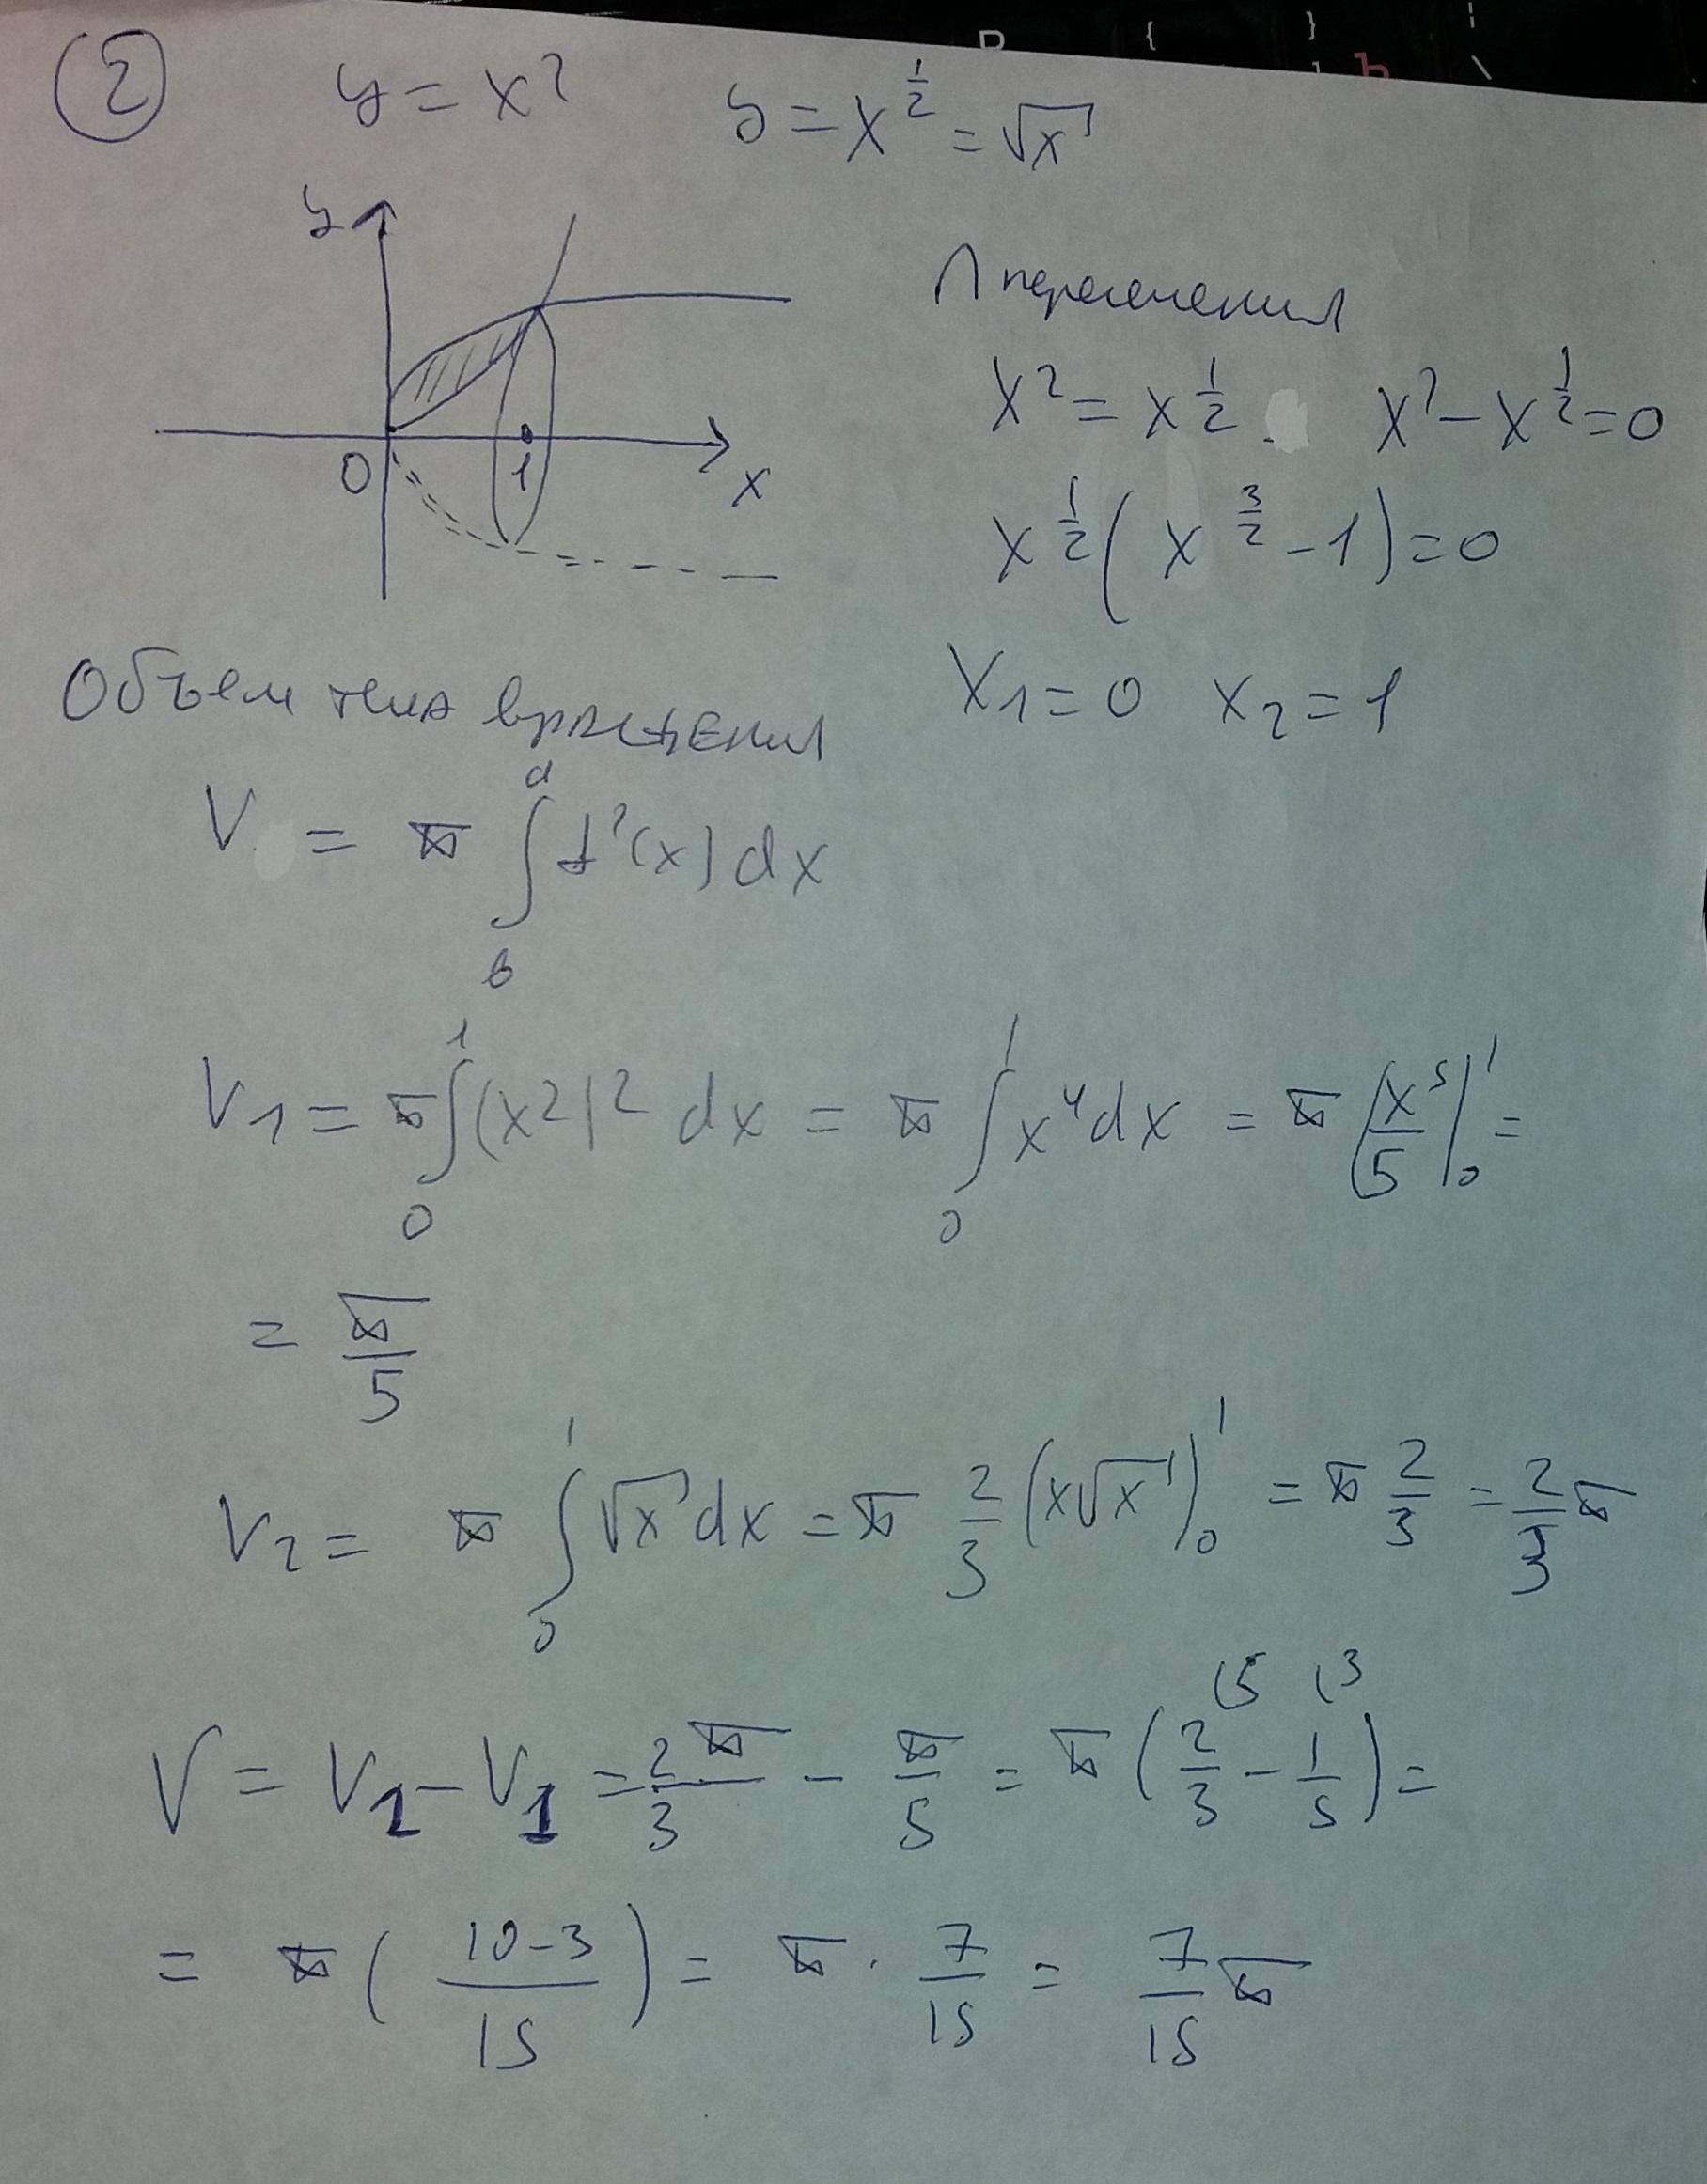 2 y = x² y = x^(1/2) = √x
y
П пересечения
x² = x^(1/2) x² - x^(1/2) = 0
0 1 x
x^(1/2) (x^(3/2) - 1) = 0
x₁ = 0 x₂ = 1
Объем тела вращения
V = π ∫_b^a f²(x) dx
V₁ = π ∫_0^1 (x²)² dx = π ∫_0^1 x⁴ dx = π (x⁵/5)|_0^1 =
= π/5
V₂ = π ∫_0^1 √x dx = π 2/3 (x√x)_0^1 = π 2/3 = 2/3 π
(5 (3
V = V₂ - V₁ = 2π/3 - π/5 = π (2/3 - 1/5) =
= π ((10-3)/15) = π · 7/15 = 7/15 π